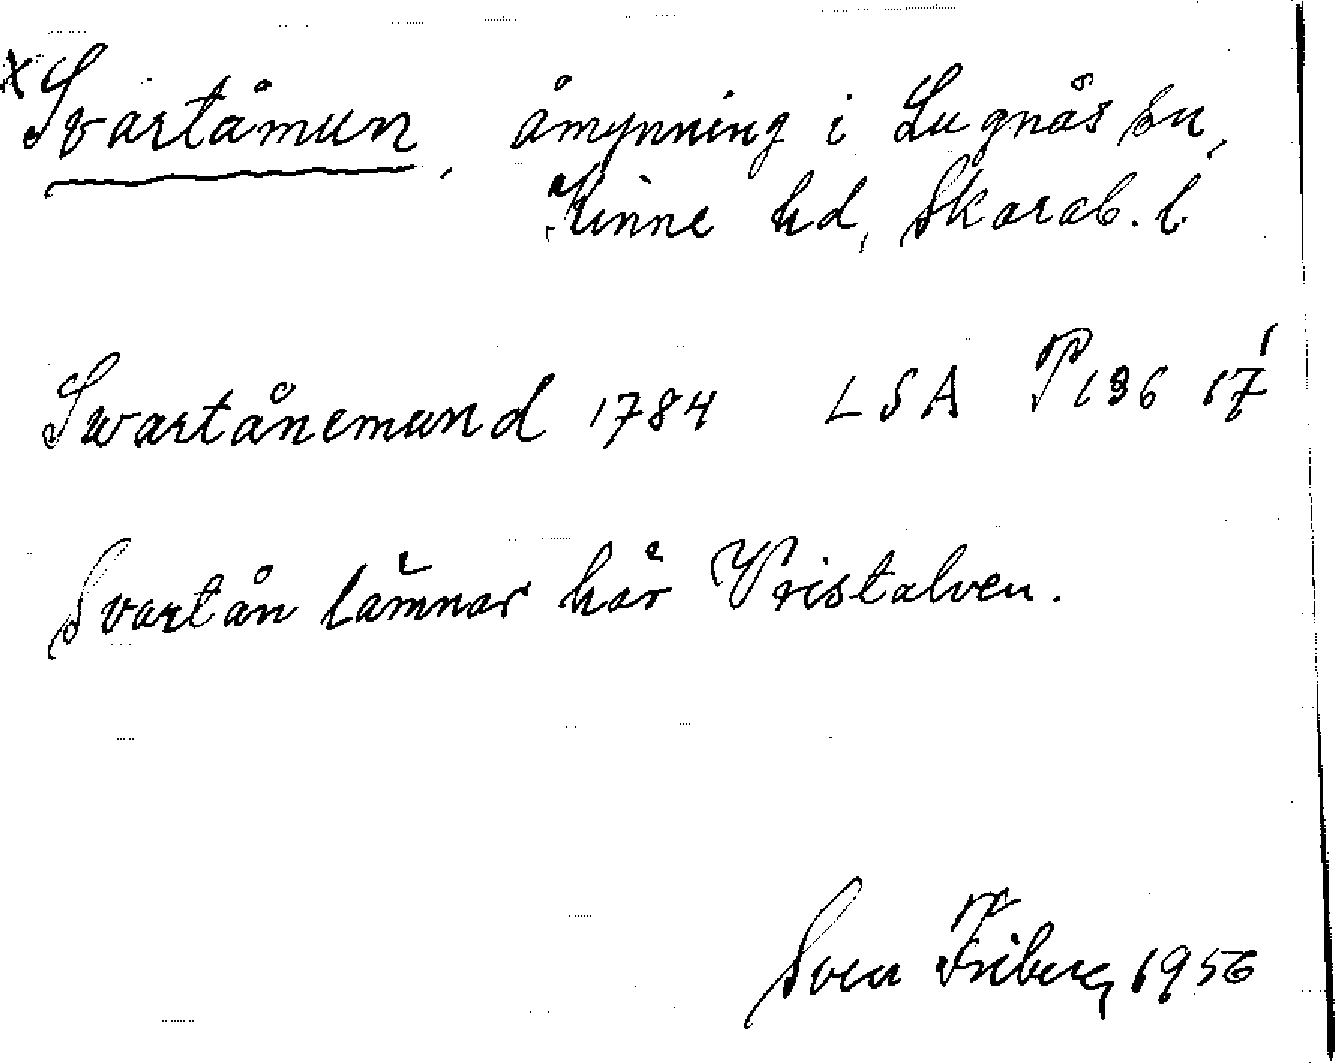 x Svartåmun, åmynning i Lugnås sn,
Kinne hd, Skarab. l.
Swartånemund 1784 LSA P136 17¹
Svartån lämnar här Vristalven.
Sven Friberg 1956